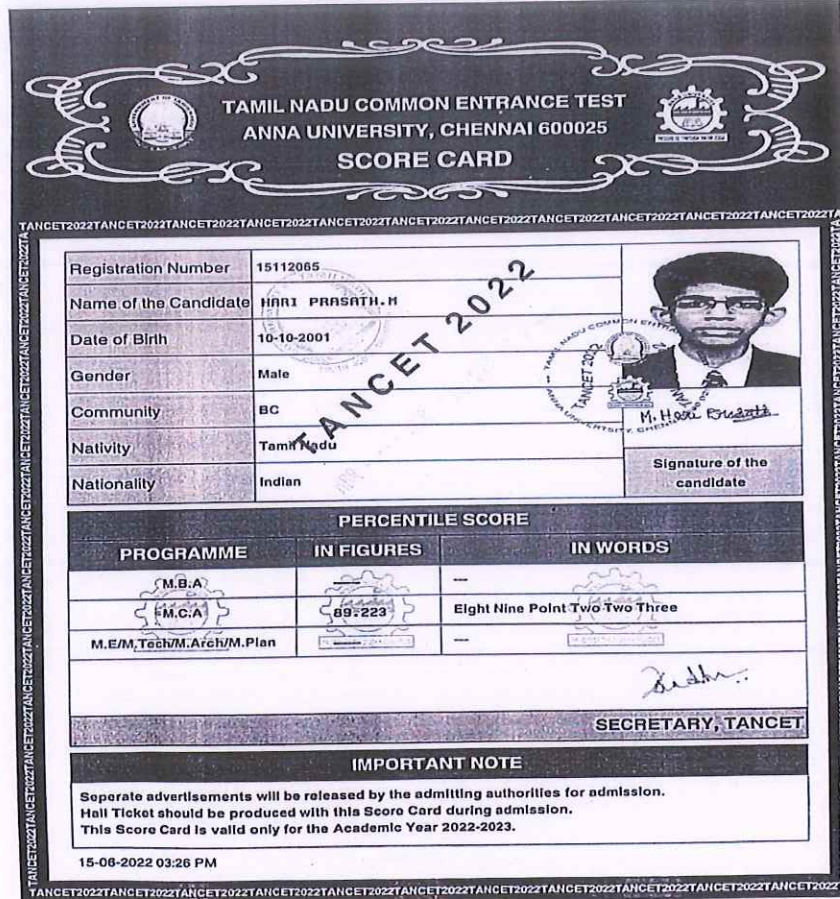 TAMIL NADU COMMON ENTRANCE TEST
ANNA UNIVERSITY, CHENNAI 600025
SCORE CARD
TANCET2022TANCET2022TANCET2022TANCET2022TANCET2022TANCET2022TANCET2022TANCET2022TANCET2022TANCET2022TANCET2022TA
Registration Number 15112065
Name of the Candidate HARI PRASATH.M
Date of Birth 10-10-2001
Gender Male
Community BC
Nativity Tamil Nadu
Nationality Indian
TANCET 2022
M. Hari Prasath
Signature of the
candidate
PERCENTILE SCORE
PROGRAMME IN FIGURES IN WORDS
M.B.A --- ---
M.C.A 89.223 Eight Nine Point Two Two Three
M.E/M.Tech/M.Arch/M.Plan --- ---
SECRETARY, TANCET
IMPORTANT NOTE
Seperate advertisements will be released by the admitting authorities for admission.
Hall Ticket should be produced with this Score Card during admission.
This Score Card is valid only for the Academic Year 2022-2023.
15-06-2022 03:26 PM
TANCET2022TANCET2022TANCET2022TANCET2022TANCET2022TANCET2022TANCET2022TANCET2022TANCET2022TANCET2022TANCET2022